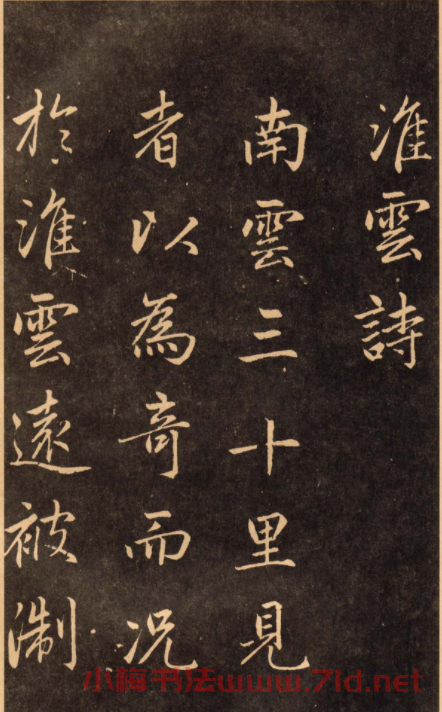 淮雲詩
南雲三十里見
者以為奇而況
於淮雲遠被淛
小梅书法www.7ld.net